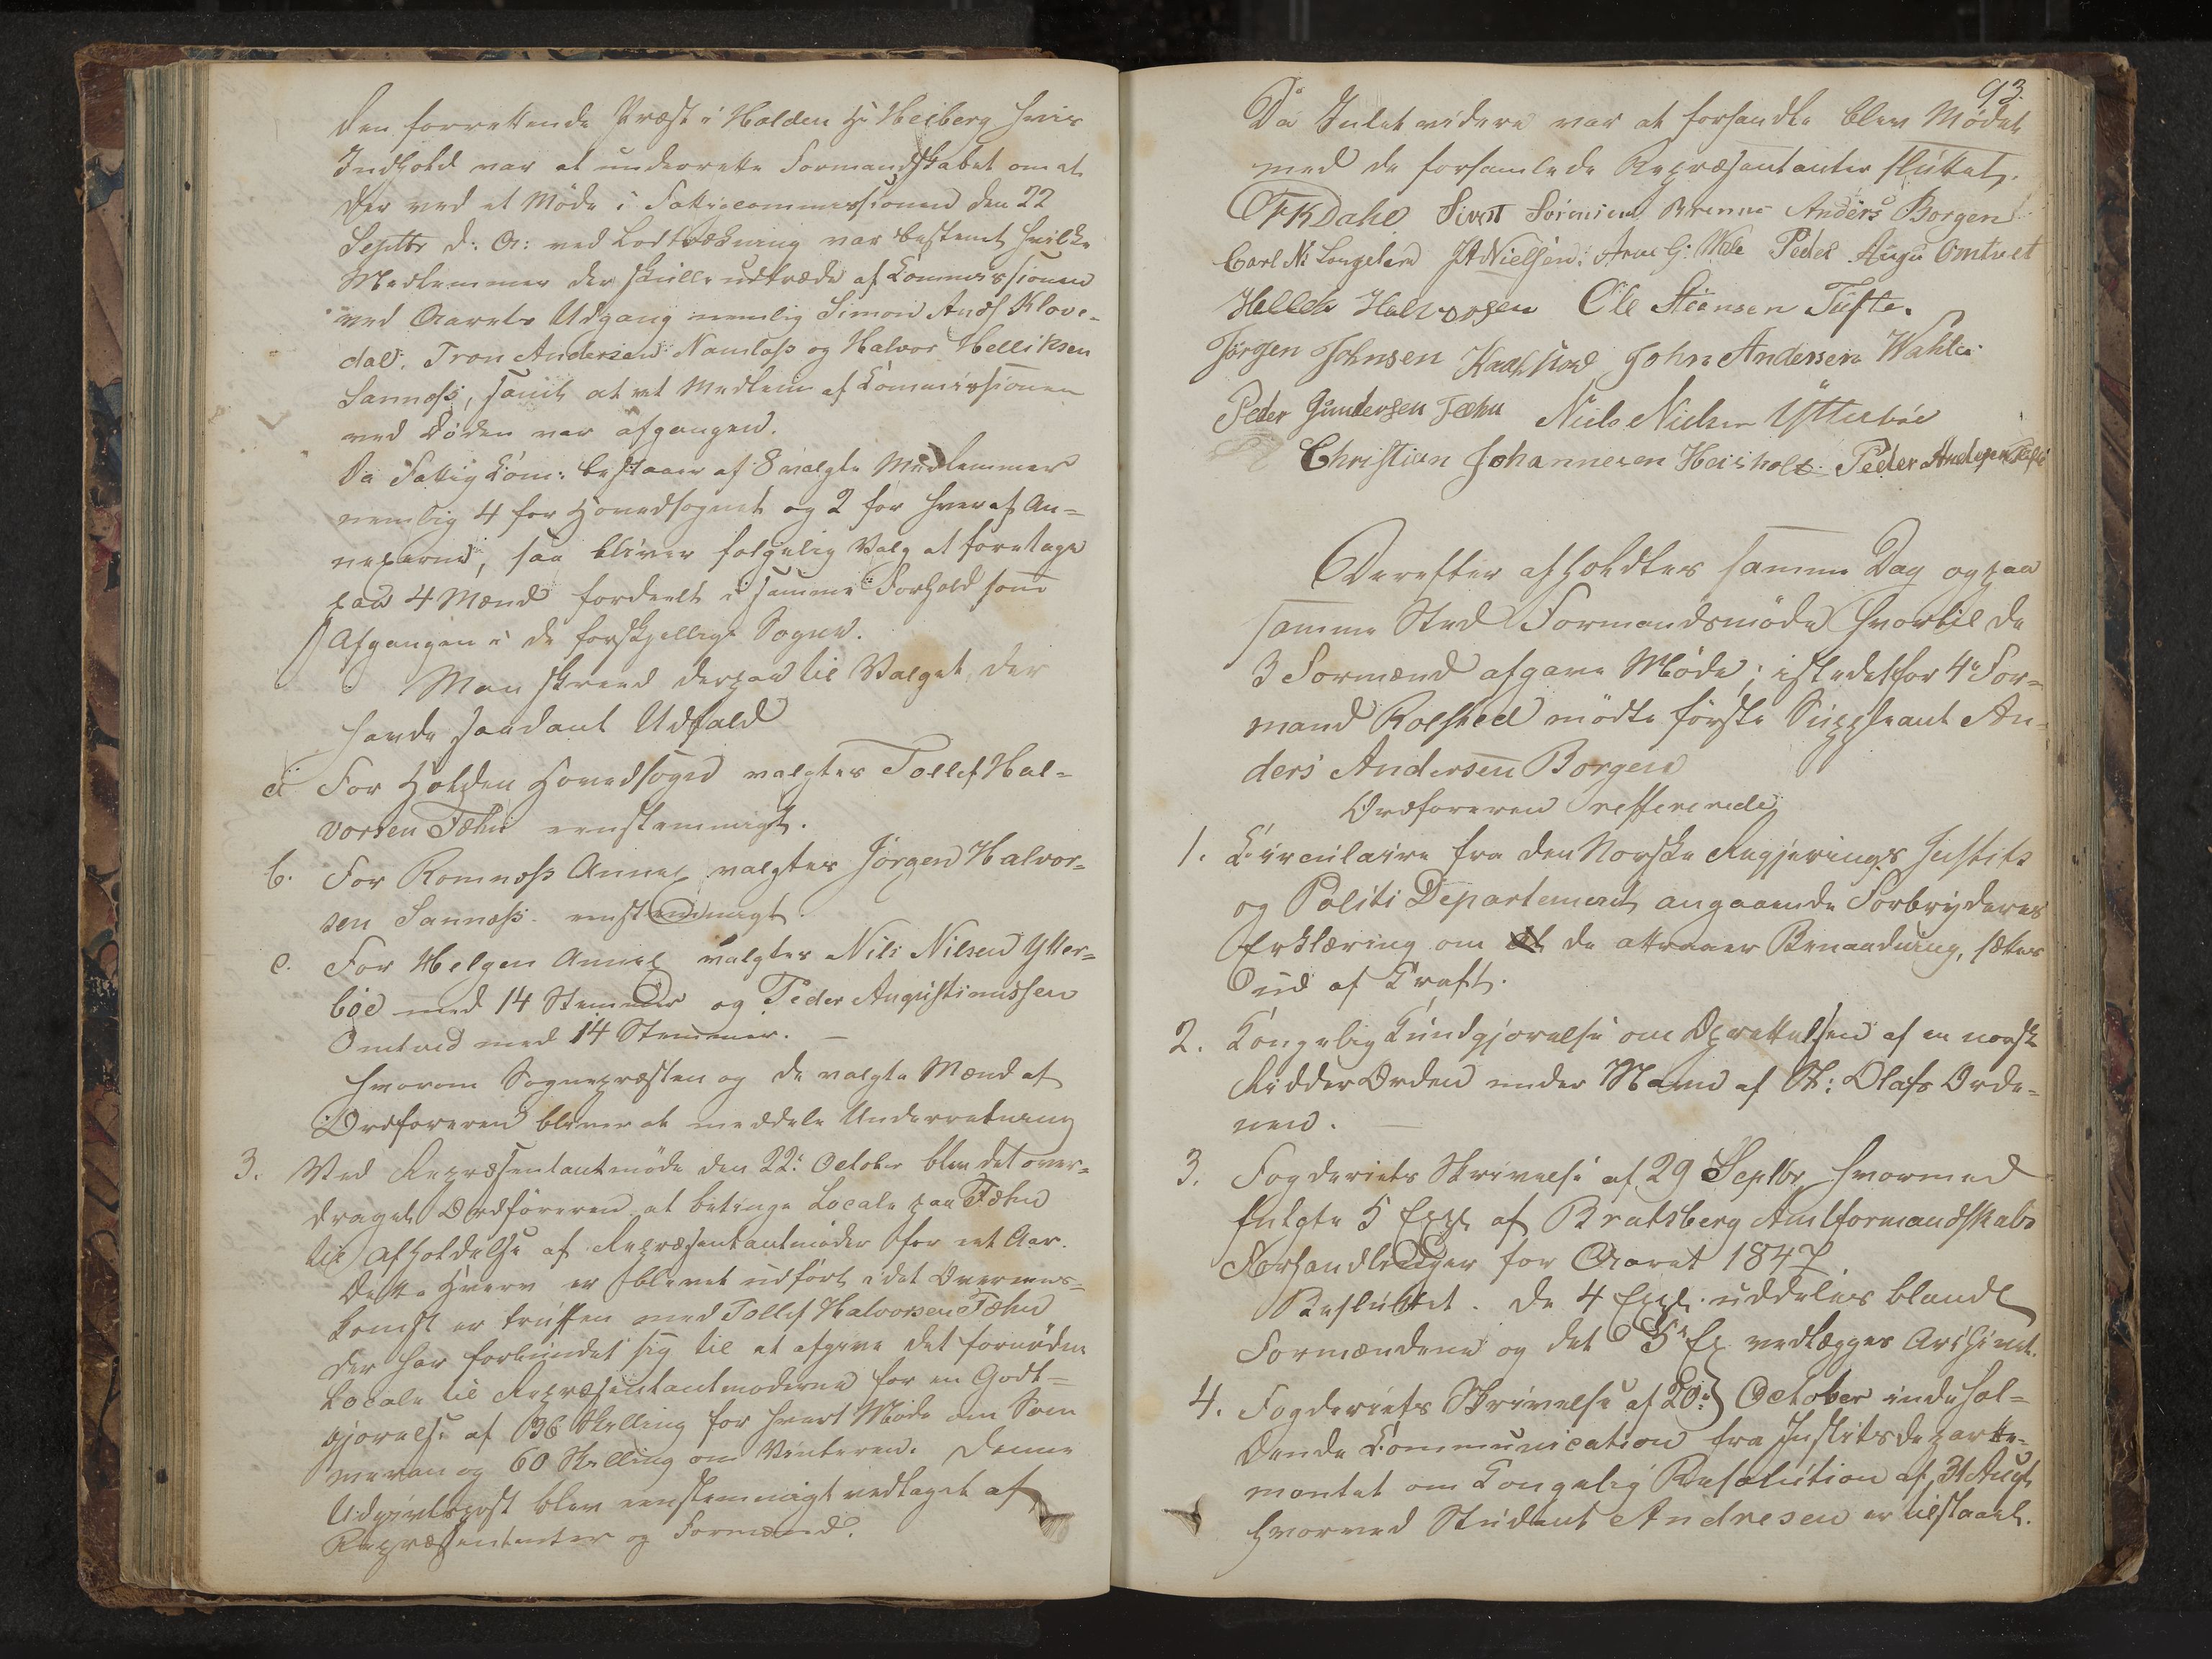 den forrettende Præst i Holden Hr Heiberg hvis
Indhold var at underrette Formandskabet om at
der ved et Møde i Fattigcommissionen den 22
Septbr d: A: ved Lodtrækning var bestemt hvilke
Medlemmer der skulle udtræde af Commissionen
ved Aarets Udgang nemlig Simon Ands Klove-
dal, Tron Andersen Namløs og HalvorIelliksen
Sannæs, samt at et Medlem af Commissionen
ved Døden var afgangen.
Da Fattig Com: bestaaer af 8 valgte Medlemmer
nemlig 4 for Hovedsognet og 2 for hver af An-
nexerne, saa bliver følgelig Valg at foretage
paa 4 Mænd fordeelt i samme Forhold som
Afgangen i de forskjellige Sogne.
Man skreed derpaa til Valget, der
havde saadant Udfald
a For Holden Hovedsogn valgtes Tollef Hal-
vorsen Fæhn eenstemmigt.
b. For Romnæs Annex valgtes Jörgen Halvor-
sen Sannæs eenstemmigt.
c. For Helgen Annex valgtes Nils Nilsen Ytter-
böe med 14 Stemmer og Peder Augustinussen
Omtved med 14 Stemmer. —
hvorom Sognepræsten og de valgte Mænd af
Ordføreren bliver at meddele Underretning
3. Ved Repræsentantmøde den 22: October blev det over-
draget Ordføreren at betinge Locale paa Fæhn
til Afholdelse af Repræsentantmøder for eet Aar.
Dette Hverv er blevet udført idet Overeens-
komst er truffen med Tollef Halvorsen Fæhn
der har forbundet sig til at afgive det fornødne
Locale til Repræsentantmøderne for en Godt-
gjørelse af 36 Skilling for hvert Møde om Som
meren og 60 Skilling om Vinteren. Denne
Udgivtspost blev eenstemmigt vedtaget af
Repræsentanter og Formænd.
93.
Da Intet videre var at forhandle blev Mødet
med de forsamlede Repræsentanter sluttet.
FKDahl Sivert Sörensen Brenne Anders Borgen
Carl N: JANielsen: Peder Augu Omtvet
Hellek Halvorsen Ole Steensen Tufte.
Jörgen Johnsen John Andersen
Peder Gundersen Fæhn Niels Nielsen Ytterböe
Christian Johannesen Heisholt Peder
Derefter afholdtes samme Dag og paa
samme Sted Formandsmöde hvortil de
3 Formænd afgave Møde; istedetfor 4e For-
mand Rolsted mödte förste Suppleant An-
ders Andersen Borgen
Ordføreren refferede
1. Circulaire fra den Norske Regjerings Justits
og Politi Departement angaaende Forbryderes
Erklæring om at de attraaer Benaadning, sættes
ud af Kraft.
2. Kongelig Kundgjørelse om Oprettelsen af en norsk
Ridder Orden under Navn af St: Olafs Orde-
nen. —
3. Fogderiets Skrivelse af 29 Septbr hvormed
fulgte 5 Expl af Bratsberg Amtformandskabs
Forhandlinger for Aaret 1847.
Besluttet. De 4 Expl: uddeles blandt
Formændene og det 5e Ex vedlægges Archivet.
4. Fogderiets Skrivelse af 20: October indehol-
dende Communication fra Justitsdeparte-
mentet om Kongelig Resolution af 31 Augt
hvorved Student Andresen er tilstaaet.